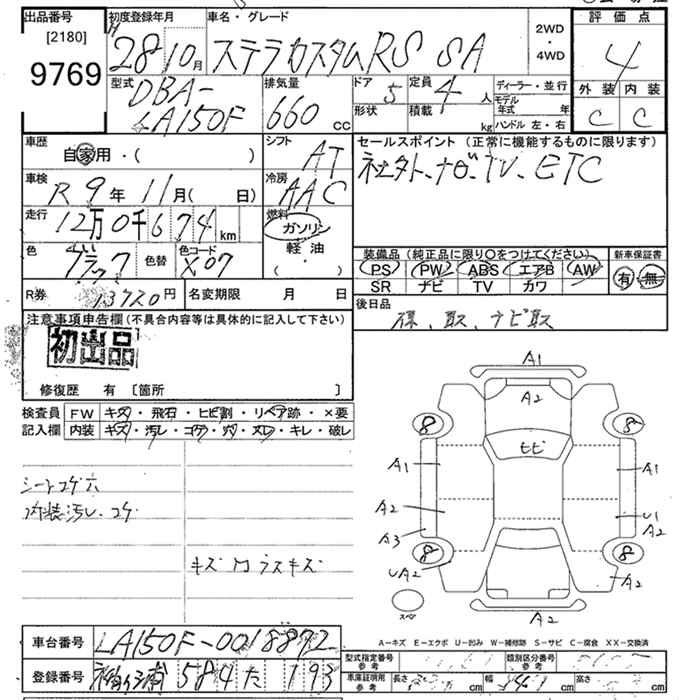 出品番号 初度登録年月 車名・グレード 評価点
[2180]
9769
H 28 10月 ステラカスタムRS SA
2WD
・
4WD
4
型式 排気量 ドア 定員 ディーラー・並行
DBA-
LA150F
660 CC
5
4 人
形状 積載 kg
モデル年式 年
ハンドル 左・右
外装 内装
C C
車歴 自家用・( )
シフト AT
セールスポイント (正常に機能するものに限ります)
社外ナビ、TV、ETC
車検 R 9年 11月( 日)
冷房 AAC
走行 12万0千674 km
燃料 ガソリン
軽油
( ・ )
色 ブラック 色替 色コード X07
装備品 (純正品に限り○をつけてください) 新車保証書
PS PW ABS エアB AW 有・無
SR ナビ TV カワ
R券 13720円 名変期限 月 日
後日品
保、取、ナビ取
注意事項申告欄 (不具合内容等は具体的に記入して下さい)
初出品
修復歴 有 〔箇所 〕
検査員 FW キズ・飛石・ヒビ割・リペア跡・×要
記入欄 内装 キズ・汚レ・コゲ・穴・スレ・キレ・破レ
シートコゲ穴
内装汚レ、コゲ
キズ 内 ラスキズ
A1
A2
8 8
ヒビ
A1 A1
A2 U1
A2
A3
8 8
UA2 A2
スペ A2
A-キズ E-エクボ U-凹み W-補修跡 S-サビ C-腐食 XX-交換済
車台番号 LA150F-0018872
型式指定番号 参考 類別区分番号 参考
登録番号 584 た 193
車庫証明用 参考 長さ cm 幅 cm 高さ cm